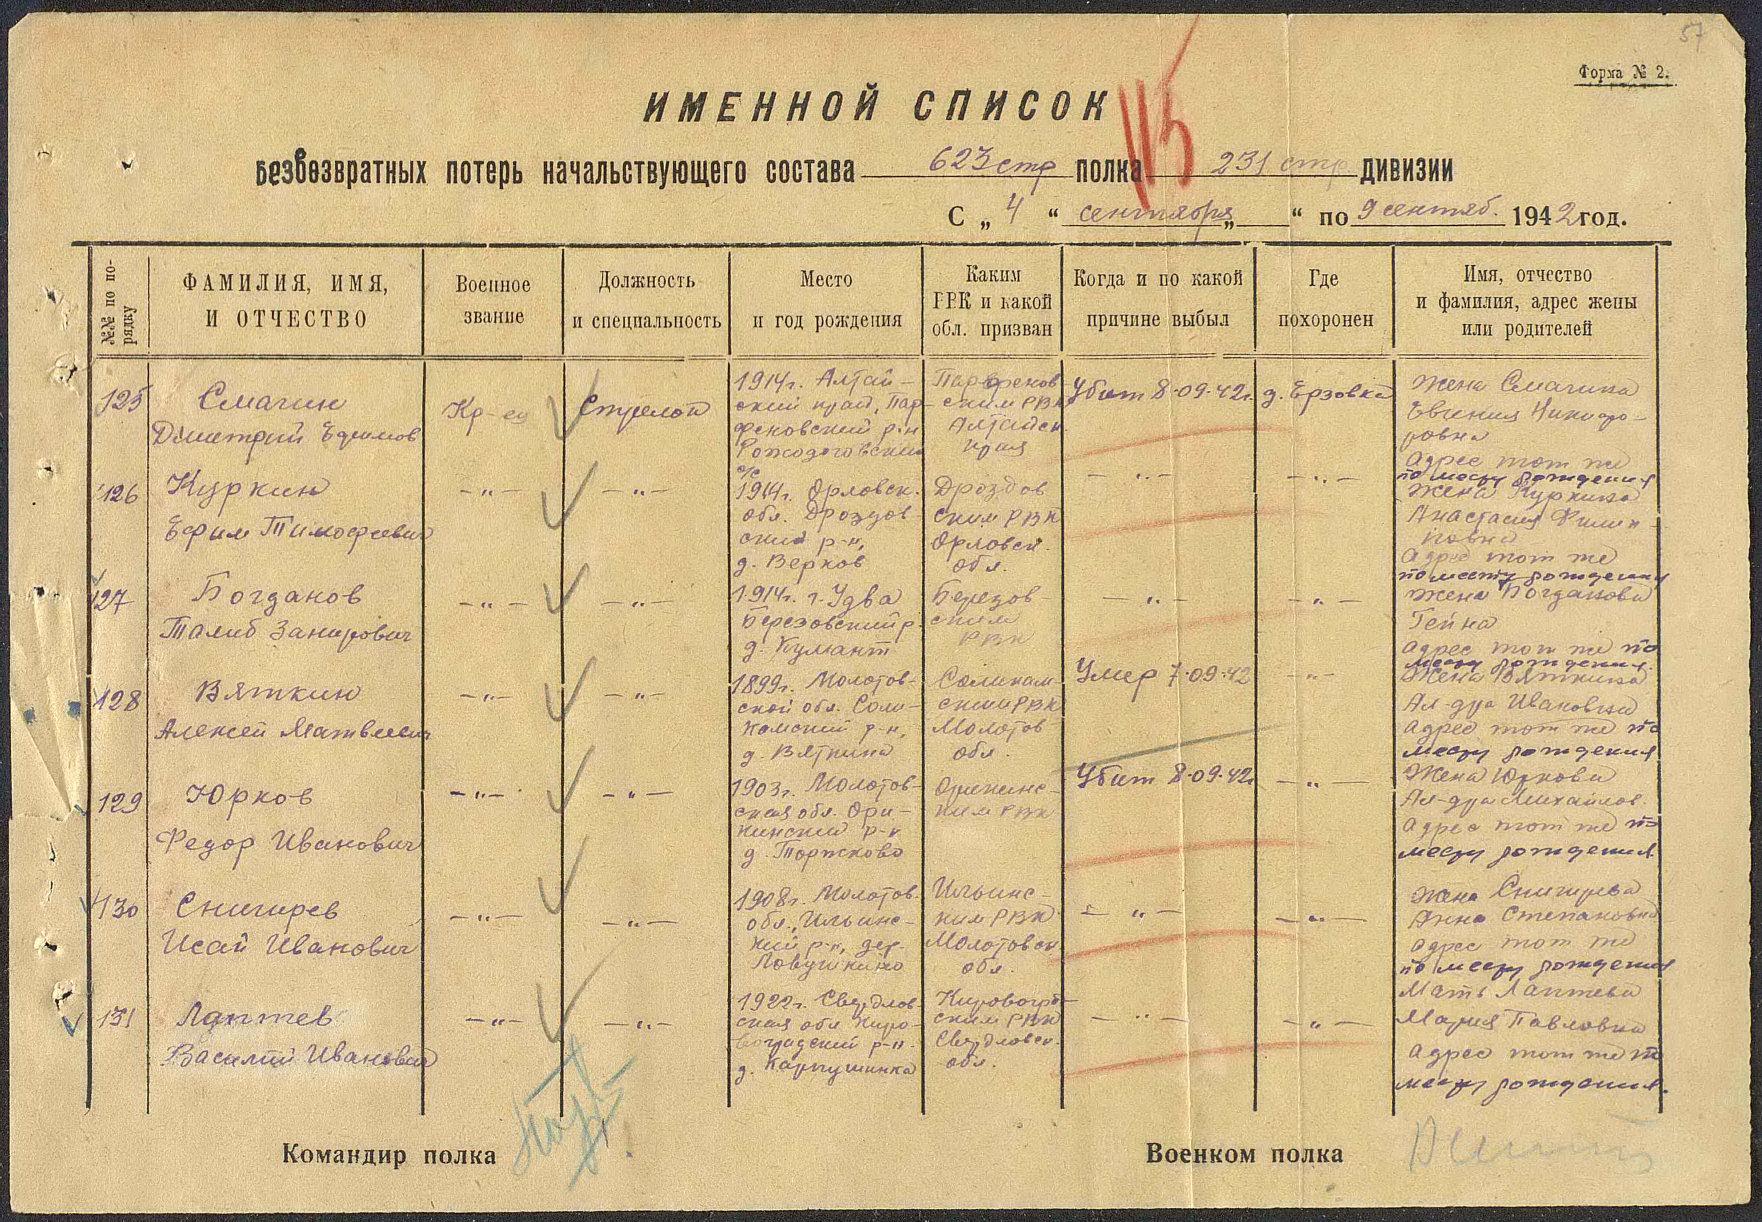 57
Форма № 2.
ИМЕННОЙ СПИСОК
115
безвозвратных потерь начальствующего состава 623 стр полка 231 стр дивизии
С „ 4 “ сентября „ “ по 9 сентяб. 1942 год.
№№ по по-
рядку
ФАМИЛИЯ, ИМЯ,
И ОТЧЕСТВО
Военное
звание
Должность
и специальность
Место
и год рождения
Каким
РВК и какой
обл. призван
Когда и по какой
причине выбыл
Где
похоронен
Имя, отчество
и фамилия, адрес жены
или родителей
125
Смагин
Дмитрий Ефимов
Кр-ец
Стрелок
1914г. Алтай-
ский край, Пар-
феновский р-н
с/с
Парфенов
ским РВК
Алтайск.
края
Убит 8.09.42г.
д. Ерзовка
Жена Смагина
Евгения Никифо-
ровна
адрес тот же
по месту рождения
126
Куркин
Ефим Тимофеевич
— „ —
— „ —
1914г. Орловск.
обл. Дроздов-
ский р-н,
д. Верхов
Дроздов
ским РВК
Орловск.
обл.
— „ —
— „ —
Жена Куркина
Анастасия Филип-
повна
адрес тот же
по месту рождения
127
Богданов
Талиб Занирович
— „ —
— „ —
1914г. г. Удва
Березовский р.
д. Кумант
Березов
ским
РВК
— „ —
— „ —
Жена Богданова
Гейна
адрес тот же по
месту рождения.
128
Вяткин
Алексей Матвеевич
— „ —
— „ —
1899г. Молотов-
ской обл. Соли-
камский р-н,
д. Вяткина
Соликам
ским РВК
Молотов
обл.
Умер 7.09.42
— „ —
Жена Вяткина
Ал-дра Ивановна
адрес тот же по
месту рождения
129
Юрков
Федор Иванович
— „ —
— „ —
1903г. Молотов-
ская обл. Ори-
чинский р-н
д. Торжково
ким РВК
Убит 8.09.42г
— „ —
Жена Юркова
Ал-дра Михайлов.
адрес тот же по
месту рождения.
130
Снигирев
Исай Иванович
— „ —
— „ —
1908г. Молотов.
обл., Ильинс-
кий р-н, дер.
Ловушкино
Ильинс-
ким РВК
Молотовск
обл.
— „ —
— „ —
Жена Снигирева
Анна Степановна
адрес тот же
по месту рождения
131
Лаптев
Василий Иванович
— „ —
— „ —
1922г. Свердлов
ская обл. Киро-
воградский р-н.
д. Карпушинка
Кировогра-
ским РВК
Свердловск.
обл.
— „ —
— „ —
Мать Лаптева
Мария Павловна
адрес тот же по
месту рождения.
Командир полка
Военком полка